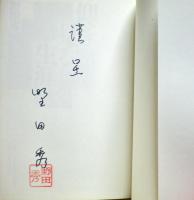 謹呈
野田秀
野田秀